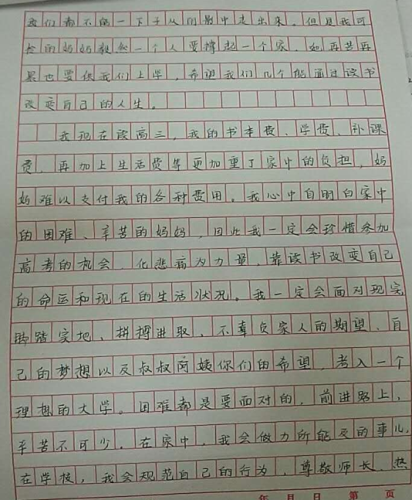 我们都不能一下子从阴影中走出来。但是我可
爱的妈妈毅然一个人要撑起一个家。她再苦再
累也要供我们上学，希望我们几个能通过读书
改变自己的人生。
我现在读高三，我的书本费、学费、补课
费，再加上生活费等更加重了家中的负担，妈
妈难以支付我的各种费用。我心中自明白家中
的困难、辛苦的妈妈，因此我一定会珍惜参加
高考的机会，化悲痛为力量，靠读书改变自己
的命运和现在的生活状况。我一定会面对现实
脚踏实地、拼搏进取，不辜负家人的期望、自
己的梦想以及叔叔阿姨你们的希望，考入一个
理想的大学。困难都是要面对的，前进路上，
辛苦不可少。在家中，我会做力所能及的事儿，
在学校，我会规范自己的行为，尊敬师长、热
年 月 日 第 页